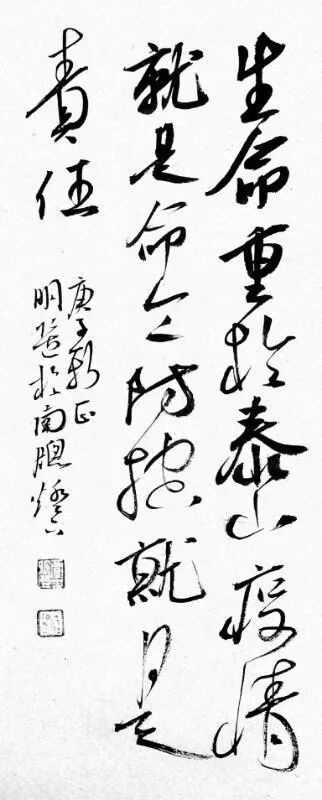 生命重於泰山疫情
就是命令防控就是
責任
庚子新正
明於南牕燈下